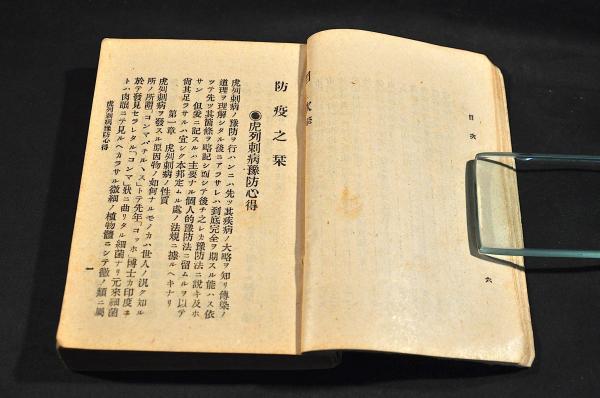 目次
六
防疫之栞
虎列刺病豫防心得
虎列刺病ノ豫防ヲ行ハンニハ先ツ其疾病ノ大略ヲ知リ傳染ノ
道理ヲ理解シタル後ニアラサレハ到底完全ヲ期スル能ハス依
ツテ先ツ其箇條ヲ略記シ而シテ後チ之レカ豫防法ニ説キ及ホ
サン但爰ニ記スルハ主要ナル個人的豫防法ニ留ムルヲ以テ
尚其足ラサルハ宜シク本邦定ムル處ノ法規ニ據ルヘキナリ
第一章 虎列刺病ノ性質
虎列刺病ヲ發スル原因物ノ如何ナルモノカハ世人ノ汎ク知ル
所ノ所謂「コンマバチルヽス」トテ先年「コッホ」博士カ印度ニ
於テ發見セラレタル「コンマ」狀ニ曲リタル細菌ナリ元來細菌
トハ肉眼ニテ見ルヘカラサル微細ノ植物體ニシテ黴ノ類ニ屬
虎列刺病豫防心得
一